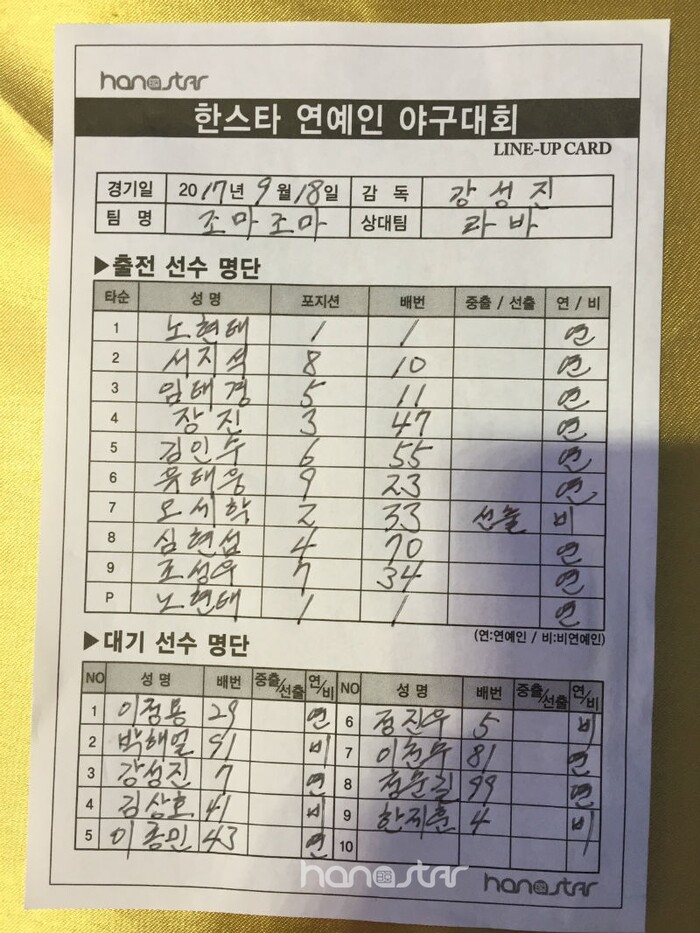 hanstar
한스타 연예인 야구대회
LINE-UP CARD
경기일 2017년 9월 18일 감 독 강성진
팀 명 조마조마 상대팀 라바
▶출전 선수 명단
타순 성 명 포지션 배번 중출 / 선출 연 / 비
1 노현태 1 1 연
2 서지석 8 10 연
3 임태경 5 11 연
4 장진 3 47 연
5 김인수 6 55 연
6 윤태웅 9 23 연
7 오세학 2 33 선출 비
8 심현섭 4 70 연
9 조성우 7 34 연
P 노현태 1 1 연
(연:연예인 / 비:비연예인)
▶대기 선수 명단
NO 성 명 배번 중출/선출 연/비 NO 성 명 배번 중출/선출 연/비
1 이정용 29 연 6 정진우 5 비
2 박해일 91 비 7 81 연
3 강성진 7 연 8 99 연
4 김상호 41 비 9 한지훈 4 비
5 이종민 43 연 10
hanstar
hanstar